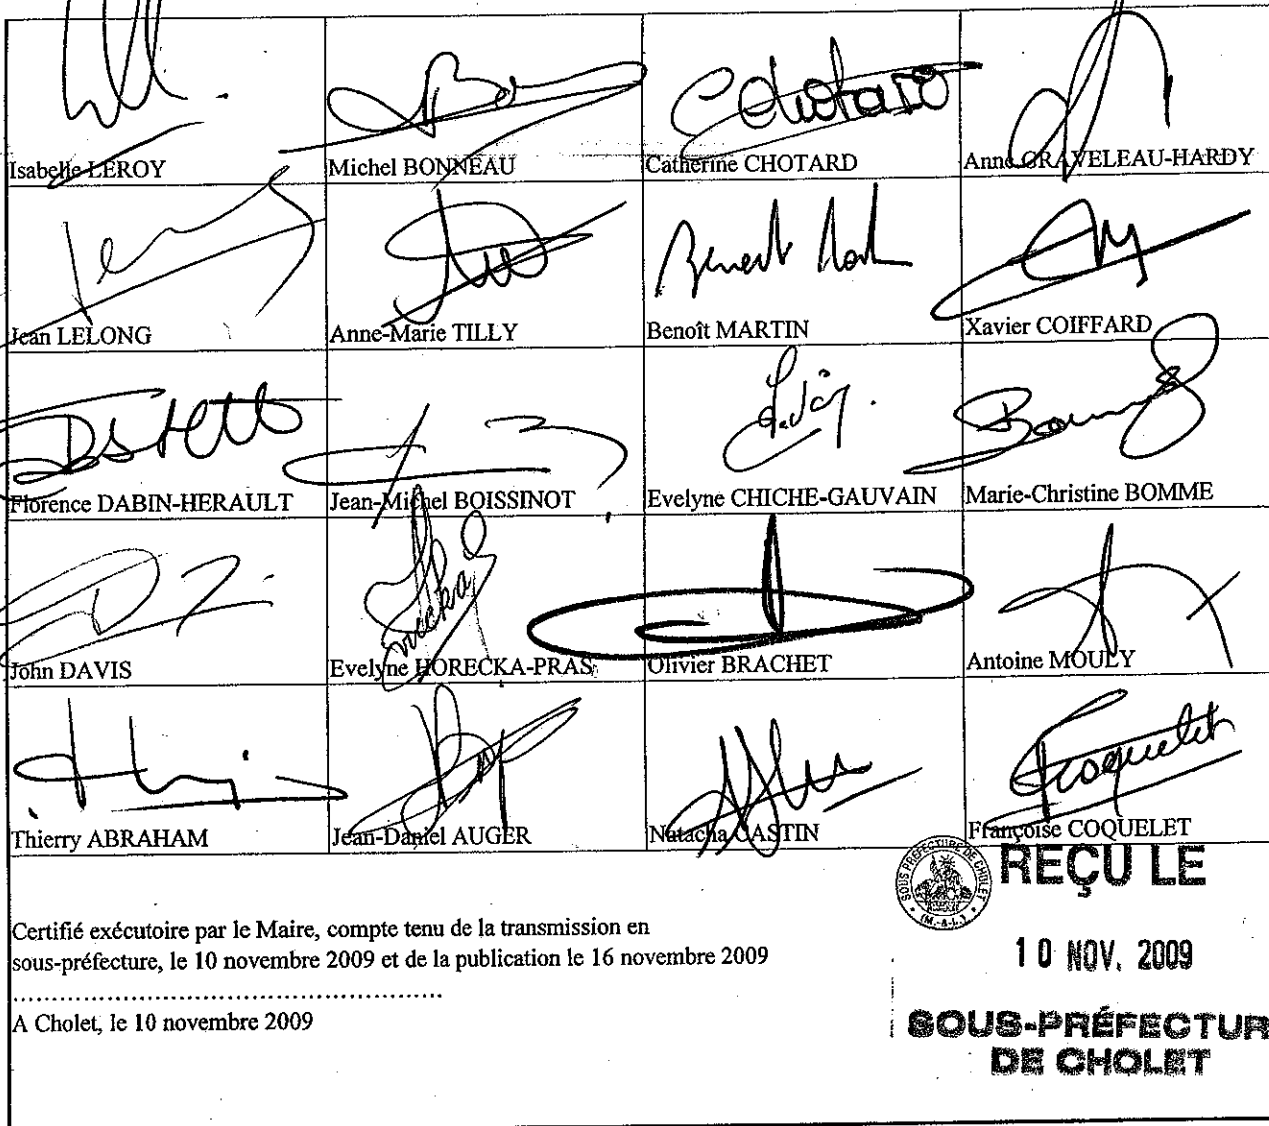 Isabelle LEROY
Michel BONNEAU
Catherine CHOTARD
Anne GRAVELEAU-HARDY
Jean LELONG
Anne-Marie TILLY
Benoît MARTIN
Xavier COIFFARD
Florence DABIN-HERAULT
Jean-Michel BOISSINOT
Evelyne CHICHE-GAUVAIN
Marie-Christine BOMME
John DAVIS
Evelyne HORECKA-PRAS
Olivier BRACHET
Antoine MOULY
Thierry ABRAHAM
Jean-Daniel AUGER
Natacha GASTIN
Françoise COQUELET
SOUS PREFECTURE DE CHOLET
(M.-&-L.)
REÇU LE
Certifié exécutoire par le Maire, compte tenu de la transmission en
sous-préfecture, le 10 novembre 2009 et de la publication le 16 novembre 2009
10 NOV. 2009
A Cholet, le 10 novembre 2009
SOUS-PRÉFECTUR
DE CHOLET